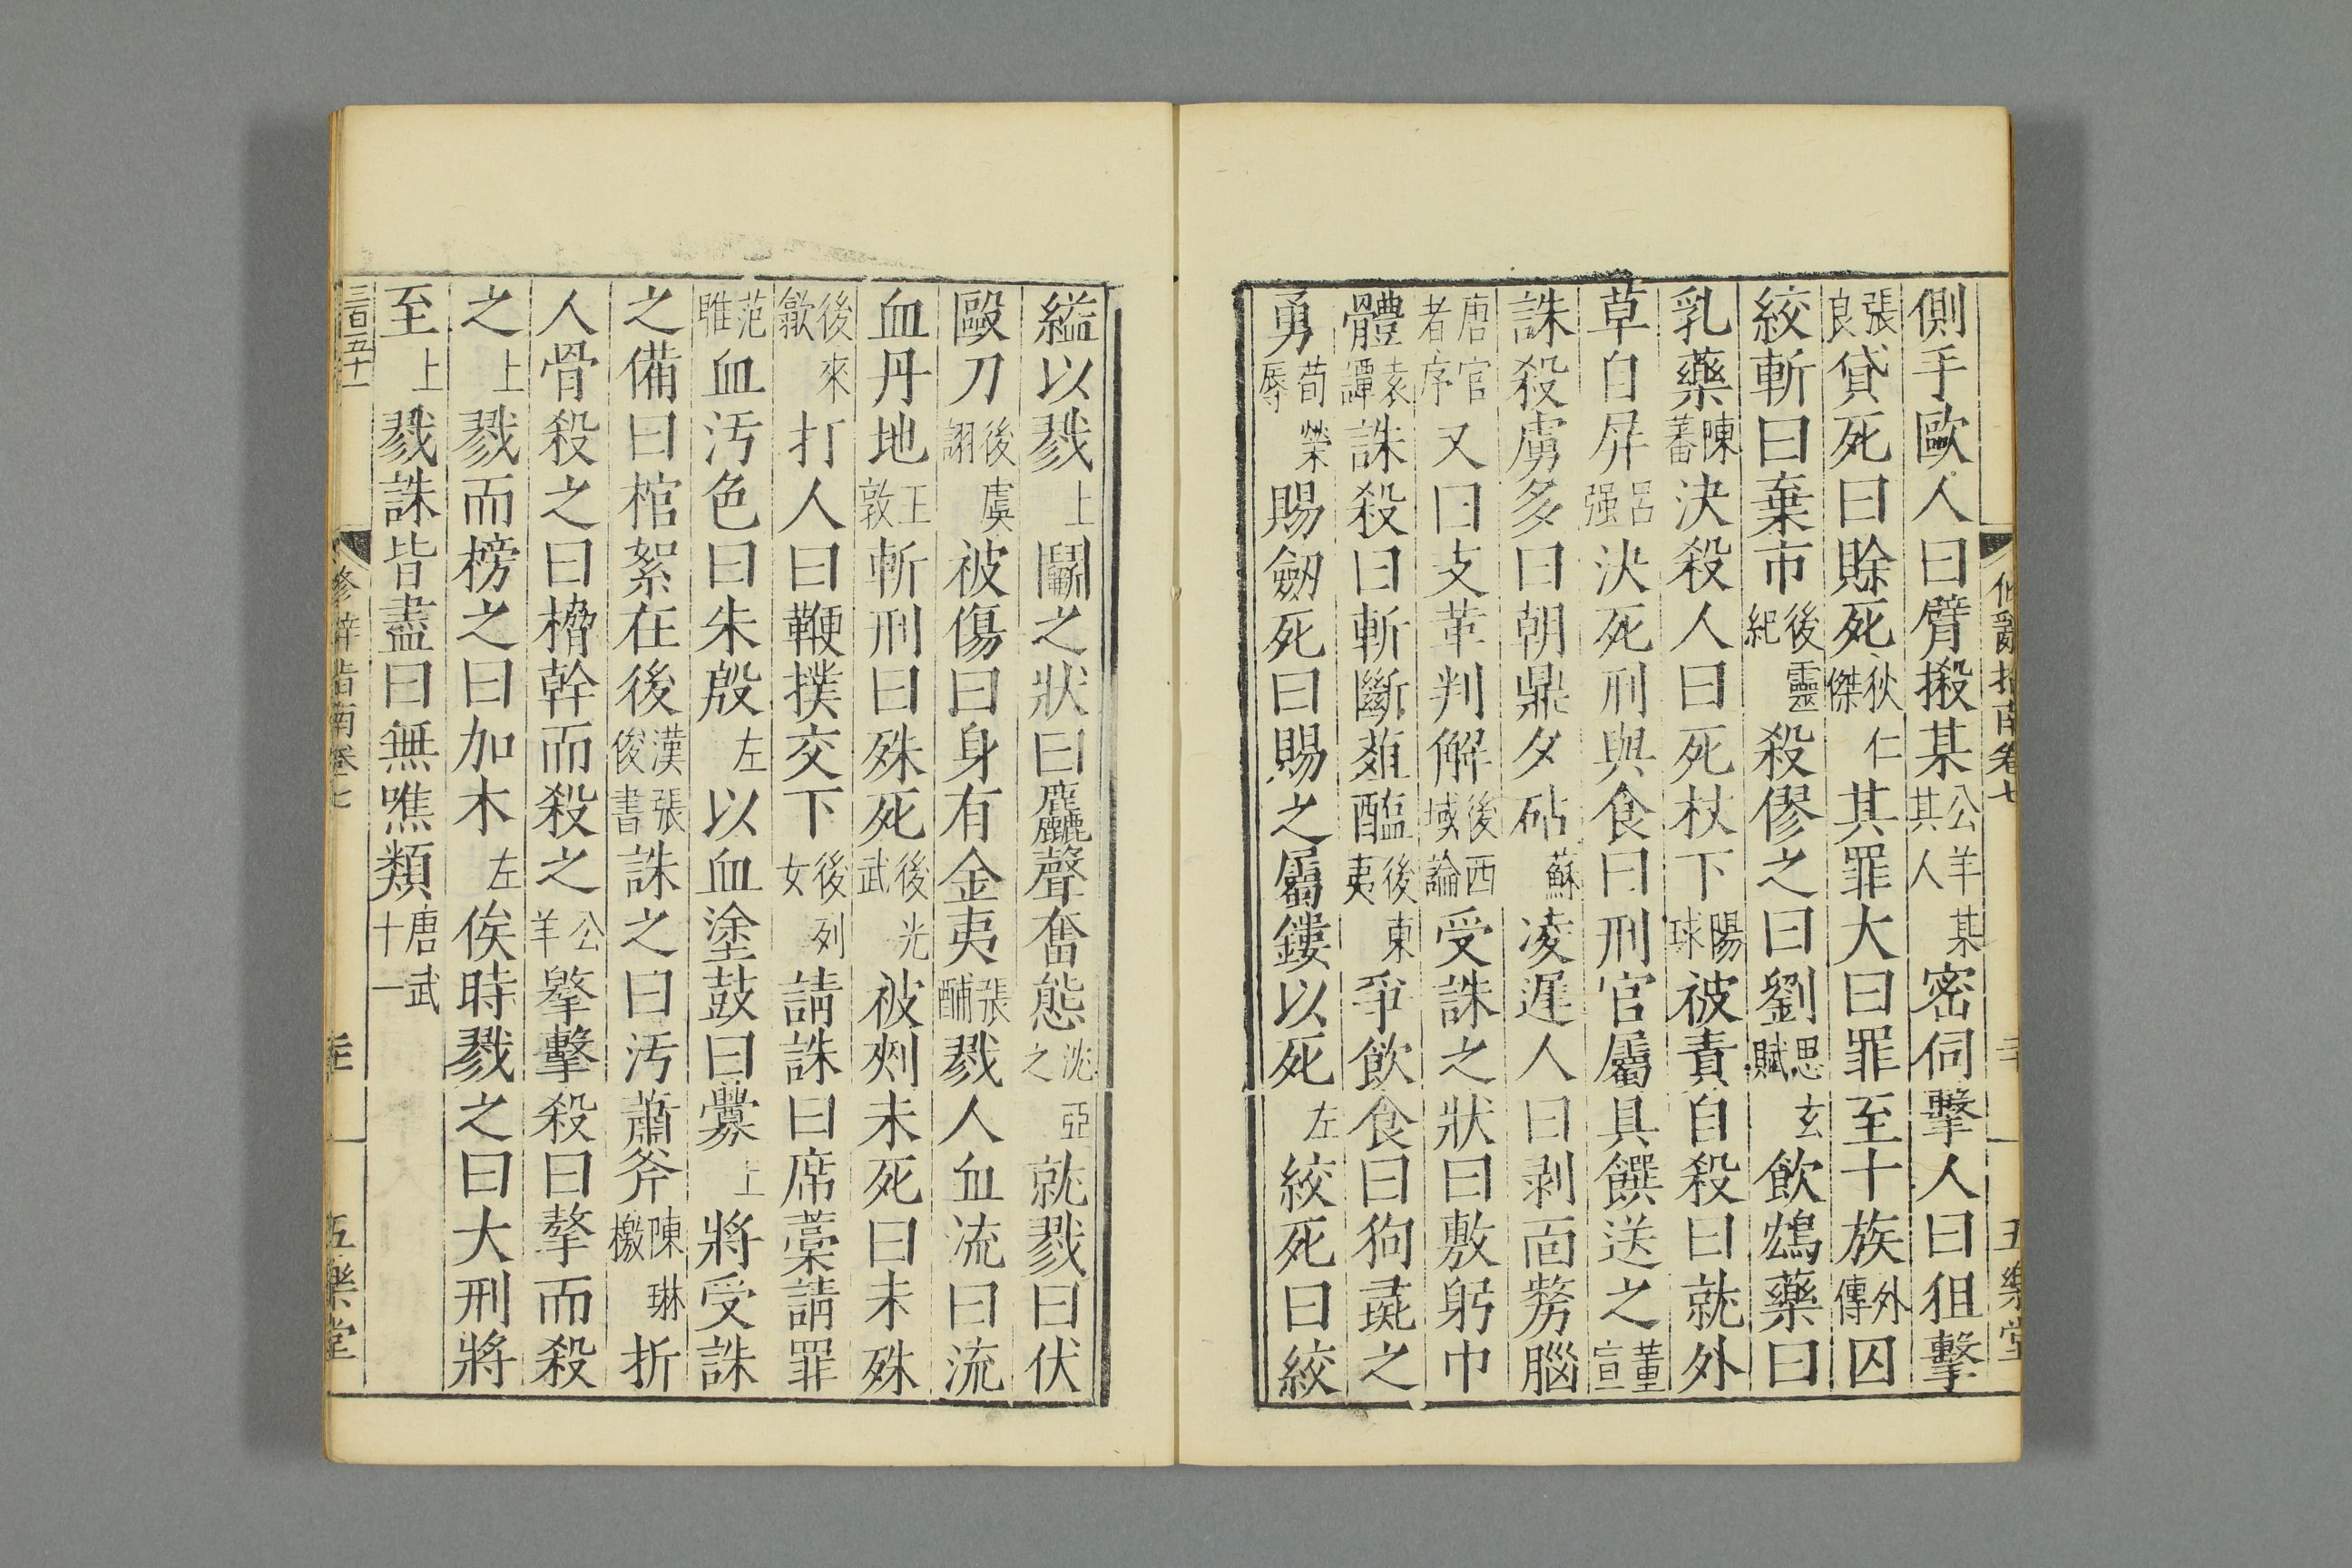 側手歐人曰臂搬某公羊其人某密伺擊人曰狙擊
張良貸死曰賒死狄仁傑其罪大曰罪至十族外傳囚
絞斬曰棄市後靈紀殺僇之曰劉思玄賦飲鴆藥曰
乳藥陳蕃決殺人曰死杖下陽球被責自殺曰就外
草自屏呂强決死刑與食曰刑官屬具饌送之董宣
誅殺虜多曰朝鼎夕砧蘇凌遲人曰剥面劵腦
唐官者序又曰支革判解後西域論受誅之狀曰敷躬巾
體袁譚誅殺曰斬斷葅醢後東夷爭飲食曰狗彘之
勇荀榮辱賜劒死曰賜之屬鏤以死左絞死曰絞
縊以戮上鬭之狀曰麤聲奮態沈亞之就戮曰伏
毆刀後虞詡被傷曰身有金夷張酺戮人血流曰流
血丹地王敦斬刑曰殊死後光武被刾未死曰未殊
後來歙打人曰鞭撲交下後列女請誅曰席藁請罪
范雎血汚色曰朱殷左以血塗鼓曰釁上將受誅
之備曰棺絮在後漢張俊書誅之曰汚蕭斧陳琳檄折
人骨殺之曰㩉幹而殺之公羊擎擊殺曰摮而殺
之上戮而榜之曰加木左俟時戮之曰大刑將
至上戮誅皆盡曰無噍類唐武十一
三百五十一
修辭指南卷七
五樂堂